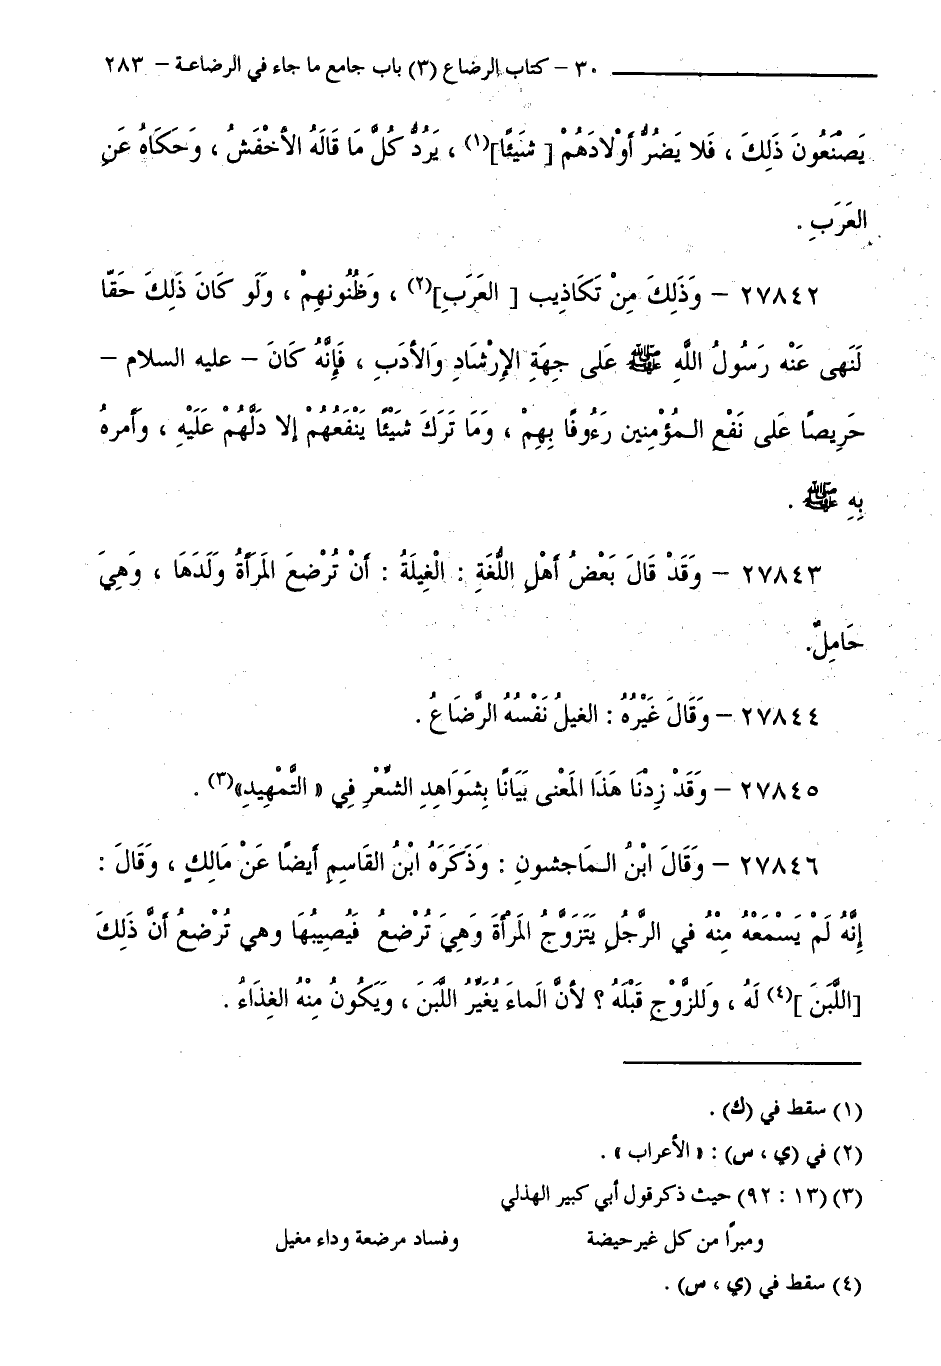 ٣٠ – كتاب الرضاع (٣) باب جامع ما جاء في الرضاعة – ٢٨٣
يَصْنَعُونَ ذَلِكَ ، فَلا يَضرُّ أَوْلادَهُمْ [ شَيئًا](١) ، يَرُدُّ كُلَّ مَا قَالَهُ الأخْفَشُ ، وَحَكَاهُ عَنِ
العَرَبِ .
٢٧٨٤٢ – وَذَلِكَ مِنْ تَكَاذِيب [ العَرَبِ](٢) ، وَظُنُونِهِمْ ، وَلَو كَانَ ذَلِكَ حَقّا
لَنَهى عَنْه رَسُولُ اللَّهِ ﷺ عَلى جِهَةِ الإِرْشَادِ وَالأدَبِ ، فَإِنَّهُ كَانَ – عليه السلام –
حَرِيصًا عَلى نَفْعِ المُؤْمِنين رَءُوفًا بِهِمْ ، وَمَا تَرَكَ شَيْئًا يَنْفَعُهُمْ إلا دَلَّهُمْ عَلَيْهِ ، وَأَمرهُ
بِهِ ﷺ .
٢٧٨٤٣ – وَقَدْ قَالَ بَعْضُ أَهْلِ اللُّغَةِ : الْغِيلَةُ : أَنْ تُرْضِعَ المَرأَةُ وَلَدَهَا ، وَهِيَ
حَامِلٌ.
٢٧٨٤٤ – وَقَالَ غَيْرُهُ : الغيلُ نَفْسُهُ الرَّضَاعُ .
٢٧٨٤٥ – وَقَدْ زِدْنَا هَذَا المَعْنى بَيَانًا بِشَوَاهِدِ الشِّعْرِ فِي « التَّمْهِيدِ»(٣) .
٢٧٨٤٦ – وَقَالَ ابْنُ المَاجشونِ : وَذَكَرَهُ ابْنُ القَاسِمِ أَيضًا عَنْ مَالِكٍ ، وَقَالَ :
إِنَّهُ لَمْ يَسْمَعْهُ مِنْهُ في الرَّجُلِ يَتَزَوَّجُ المَرأَةَ وَهِيَ تُرْضعُ فَيُصِيبُهَا وهي تُرْضعُ أَنَّ ذَلِكَ
[اللَّبَنَ ](٤) لَهُ ، وَللزَّوْجِ قَبْلَهُ ؟ لأنَّ الَماءَ يُغَيِّرُ اللَّبَنَ ، وَيَكُونُ مِنْهُ الغِذَاءُ .
(١) سقط في (ك) .
(٢) في (ي ، س) : « الأعراب » .
(٣) (١٣ : ٩٢) حيث ذكر قول أبي كبير الهذلي
ومبرأ من كل غير حيضة وفساد مرضعة وداء مغيل
(٤) سقط في (ي ، س) .